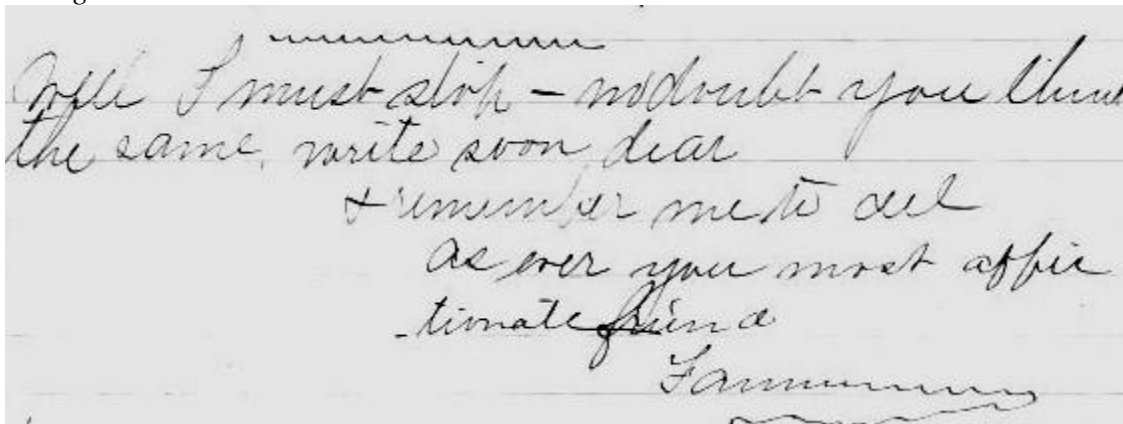 Well I must stop - no doubt you think
the same, write soon dear
& remember me to all
As ever your most affec
-tionate friend